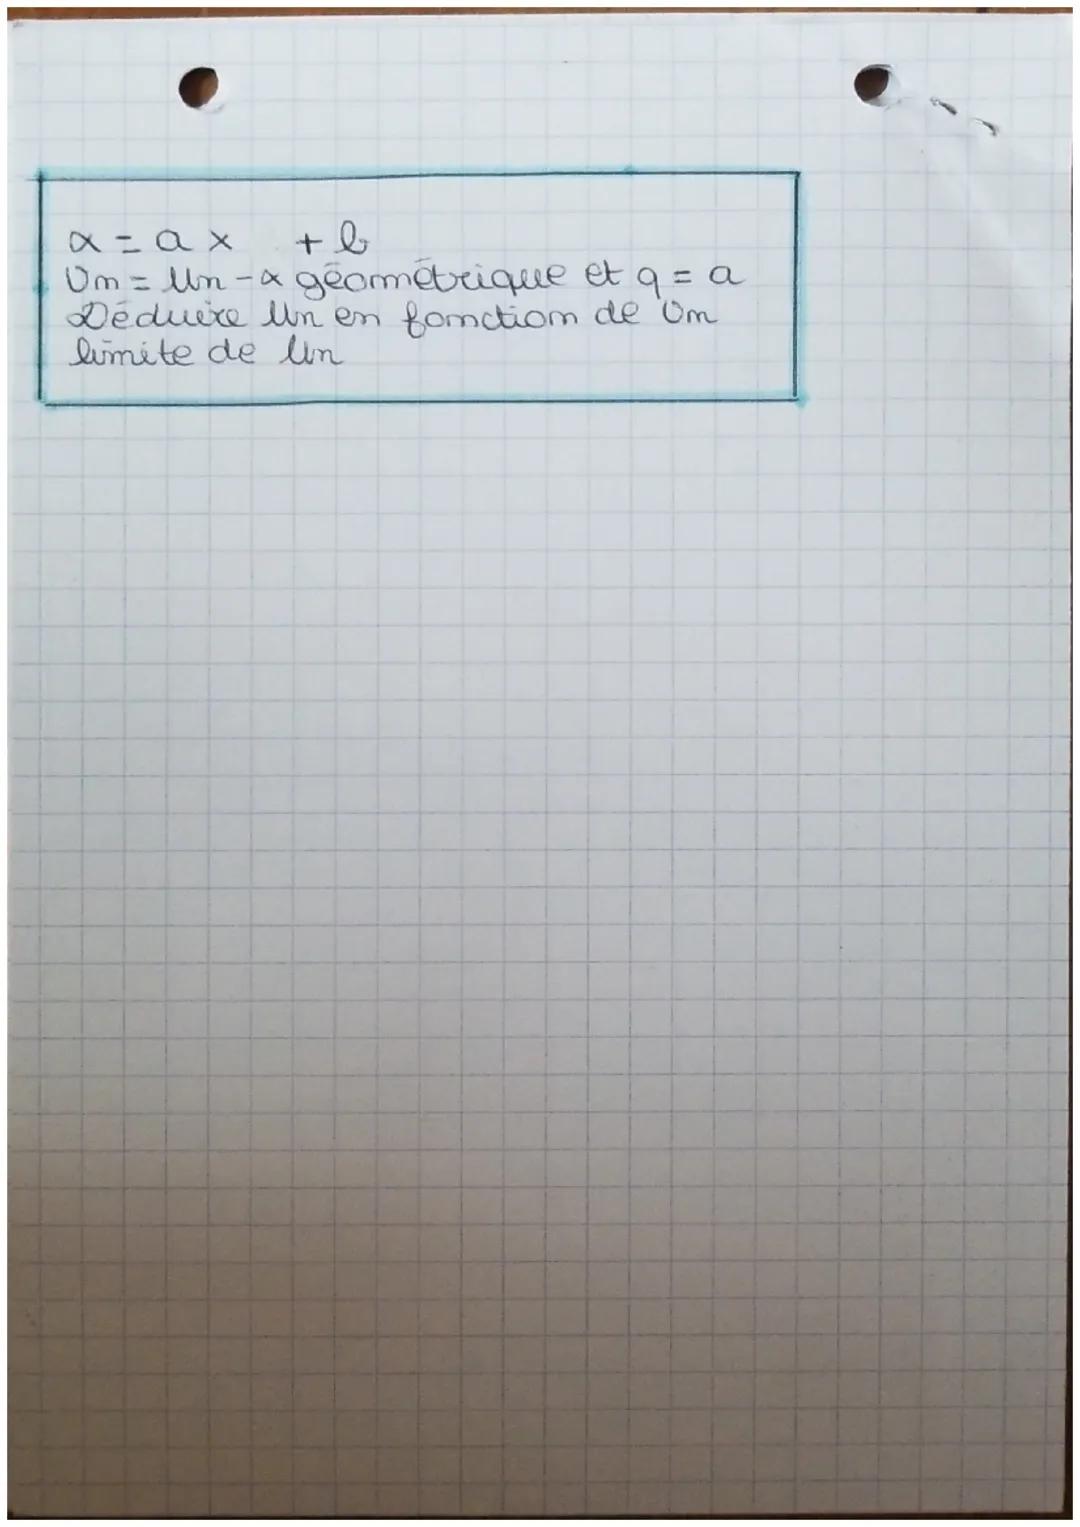 α = a x + b
Vn = Un - α géométrique et q = a
Déduire Un en fonction de Vn
limite de Un